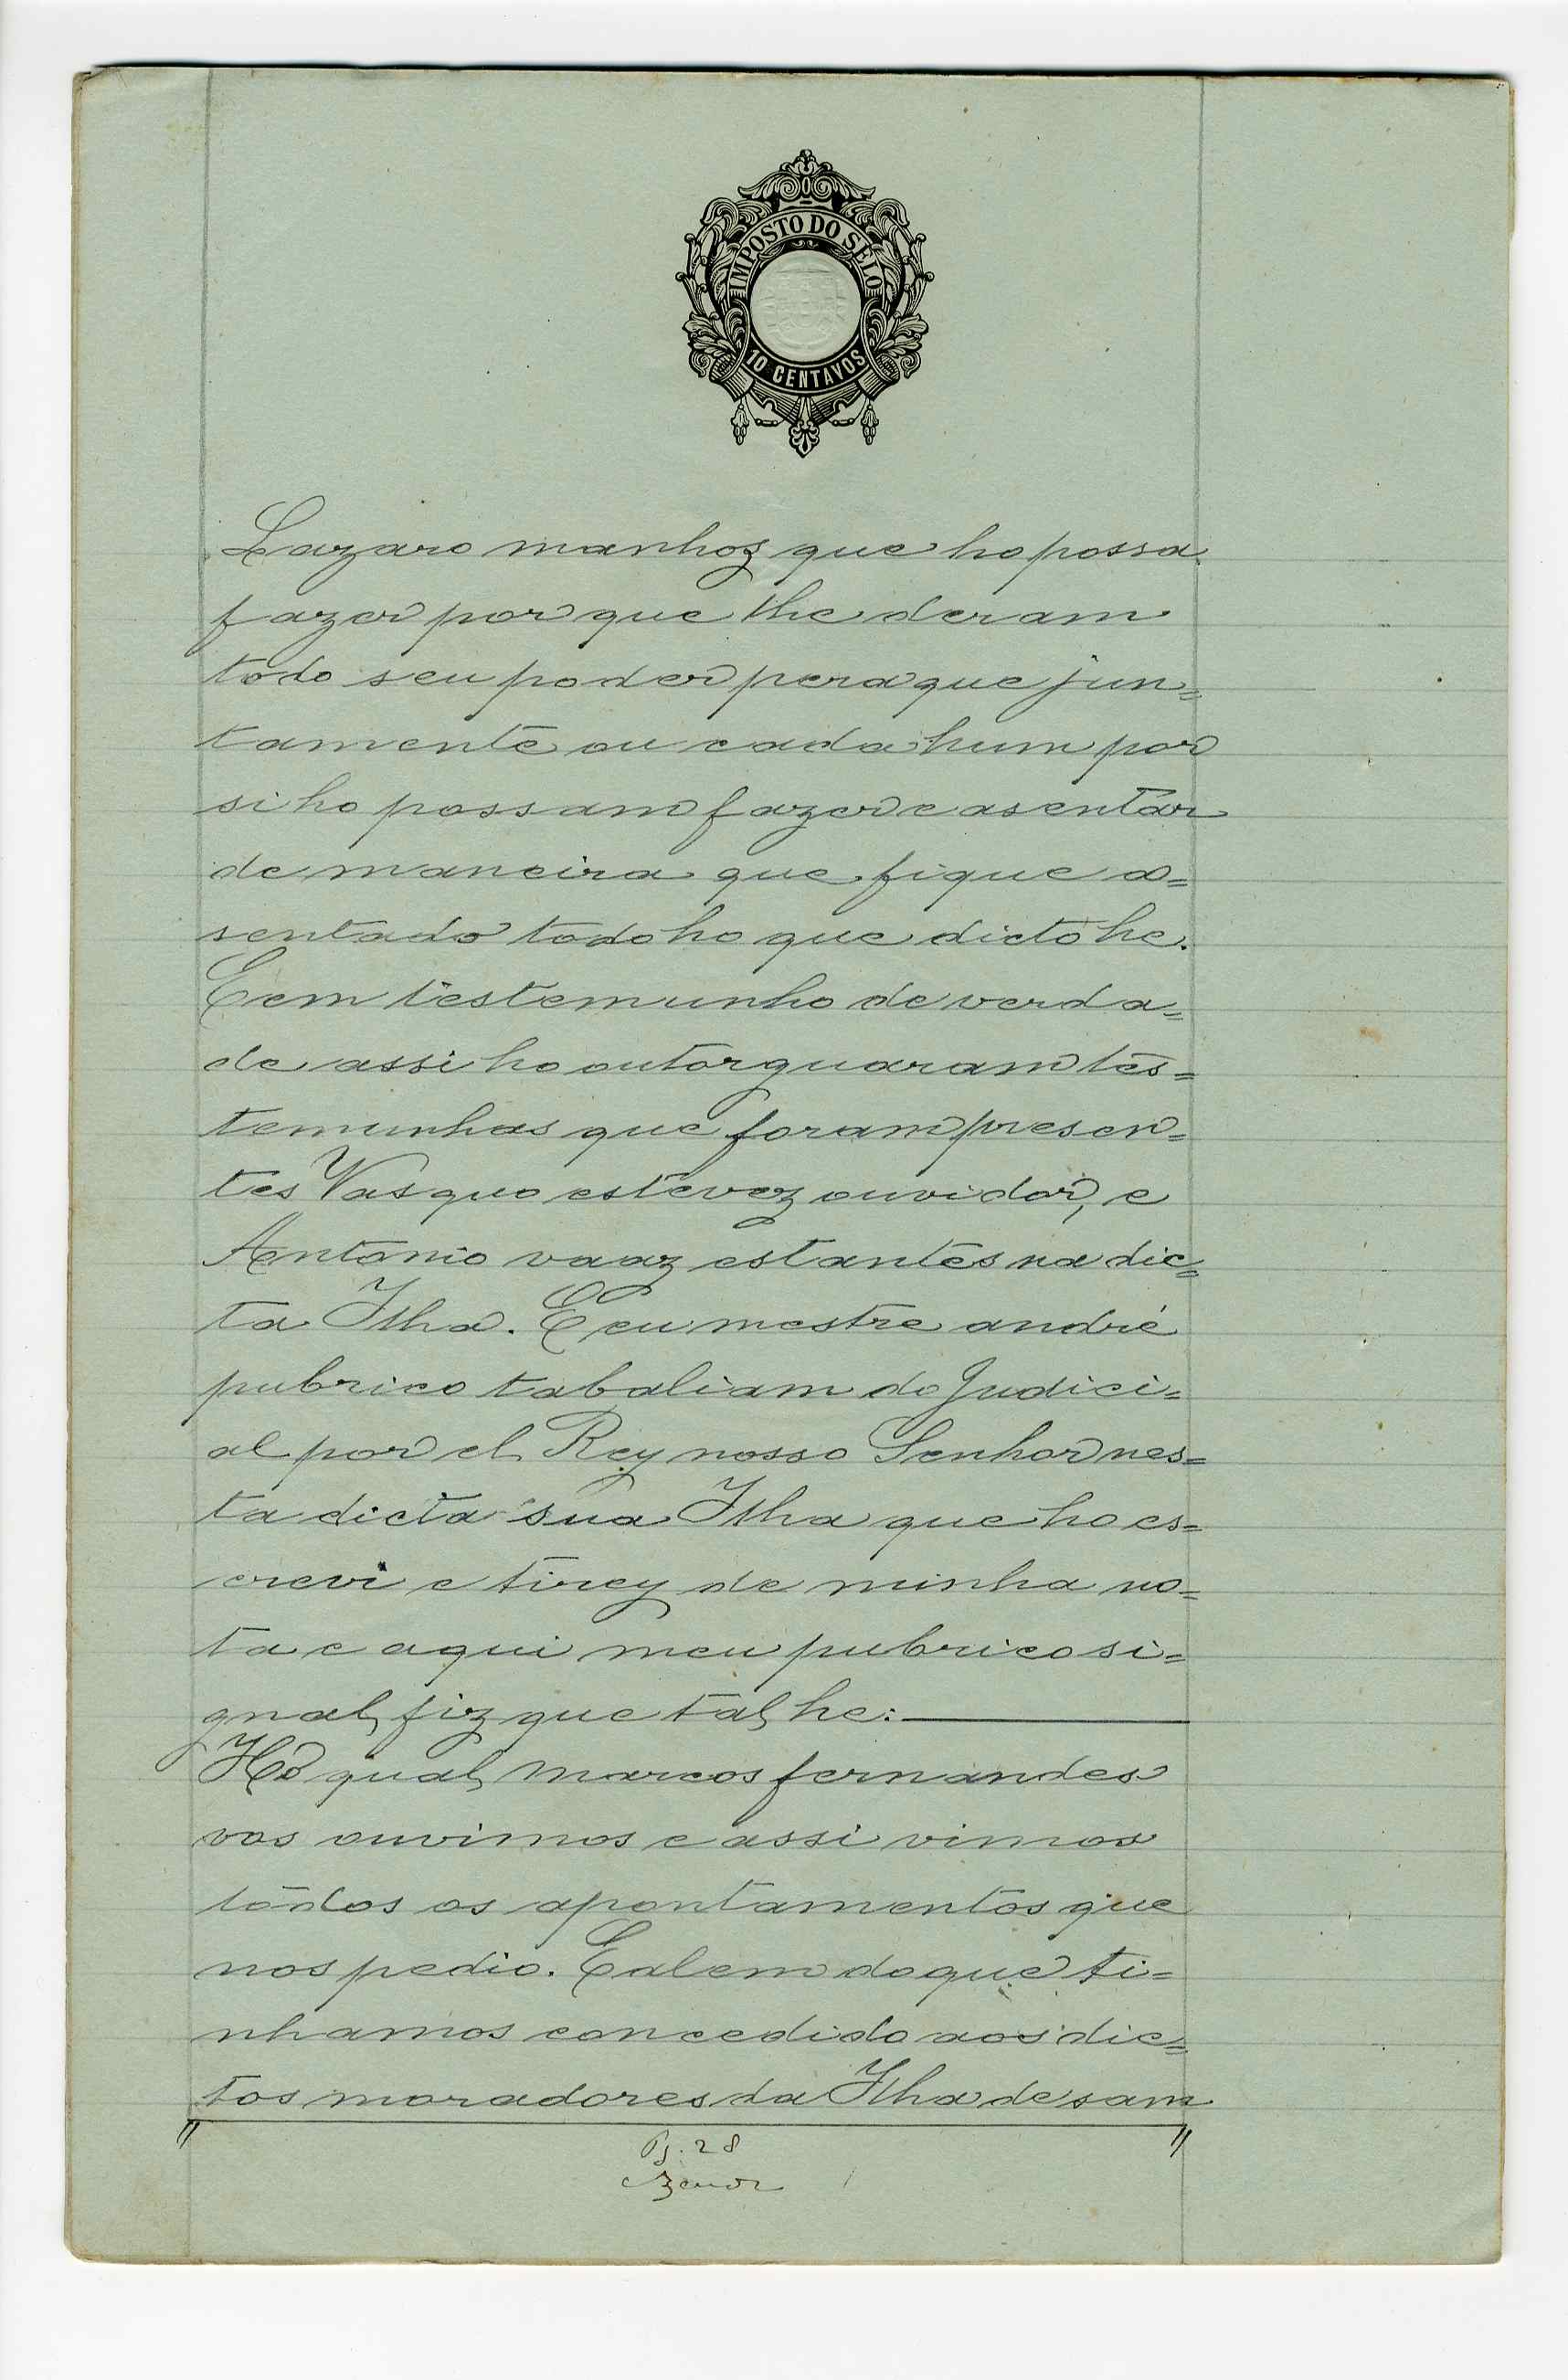 IMPOSTO DO SELO
10 CENTAVOS
Lazaro manhoz que ho possa
fazer por que lhe deram
todo seu poder pera que jun=
tamente ou cada hum por
si ho possam fazer e asentar
de maneira que fique a=
sentado todo ho que dicto he.
E em testemunho de verda=
de assi ho outorguaram tes=
temunhas que foram presen=
tes Vasquo estevez ouvidor, e
Antonio vaaz estantes na dic=
ta Ilha. E eu mestre andré
pubrico tabaliam do Judici=
al por el Rey nosso Senhor nes=
ta dicta sua Ilha que ho es=
crevi e tirey de minha no=
ta e aqui meu pubrico si=
gnal fiz que tal he:
Ho qual marcos fernandes
vos ouvimos e assi vimos
todos os apontamentos que
nos pedio. E alem do que ti=
nhamos concedido aos dic=
tos moradores da Ilha de sam
Pg. 28